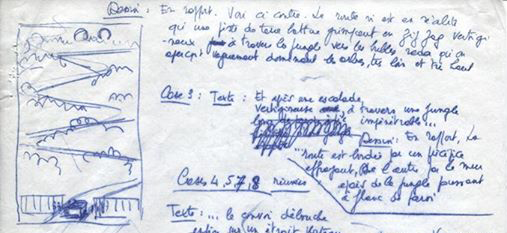 Dessin : En raffort. Vari ci contre. La route n'est en réalité
qu'une piste de terre battue grimpant en zig zag vertigi-
neux à travers la jungle vers les hautes reda qu'on
aperçoit vaguement dominant les arbres, très loin et très haut
Case 3 : Texte : Et après une escalade
vertigineuse à travers une jungle
impénétrable...
Dessin : En raffort, La
route est bordée par un précipice
effrayant, de l'autre par le mur
épais de la jungle poussant
à flanc de paroi
Cases 4, 5, 7, 8 réunies
Texte : ... le convoi débouche
enfin sur un étroit plateau